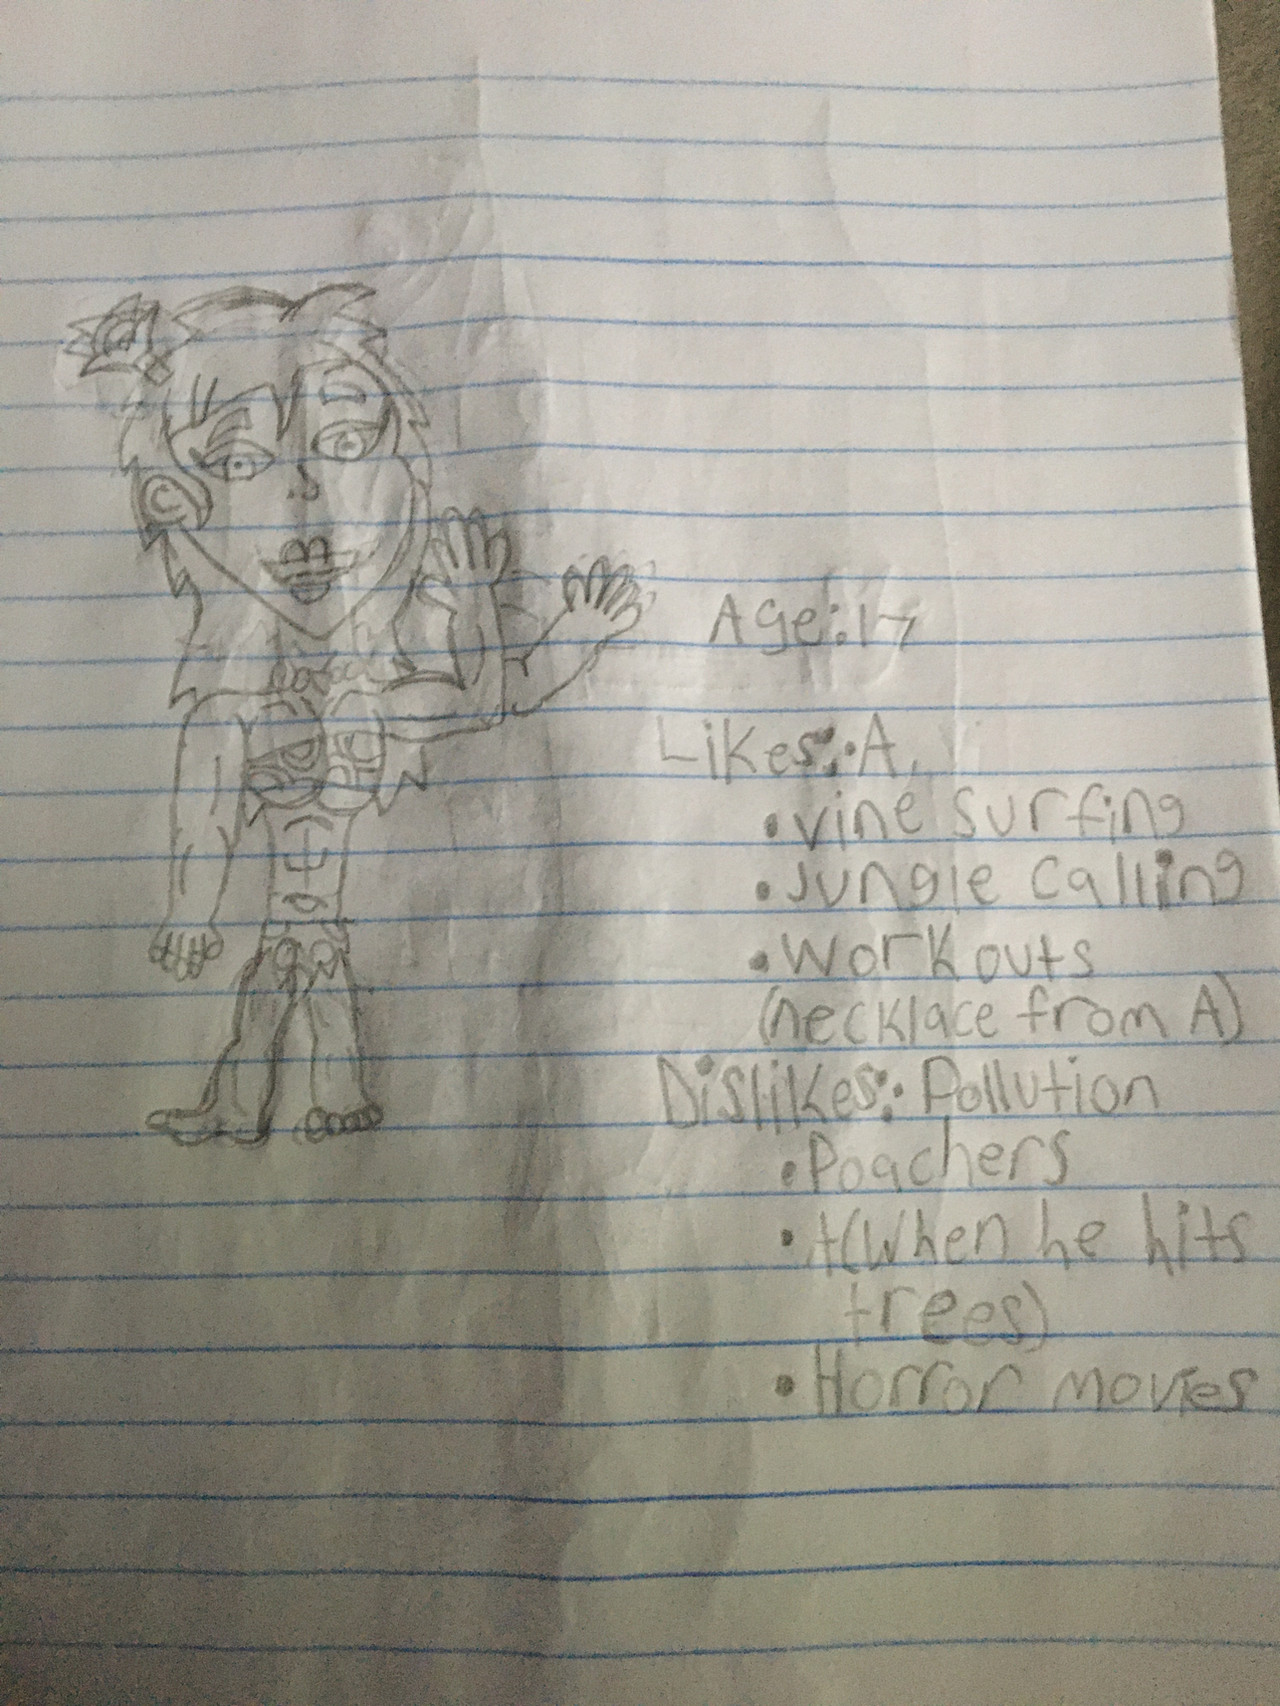 Age:17
Likes:•A
•vine surfing
•Jungle calling
•Workouts
(necklace from A)
Dislikes:•Pollution
•Poachers
•t(When he hits
trees)
•Horror movies